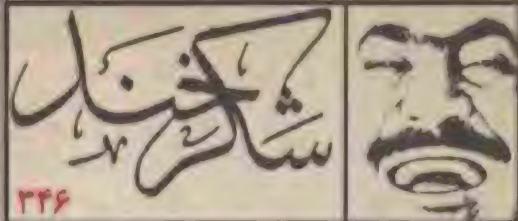 شکرخند
۳۴۶